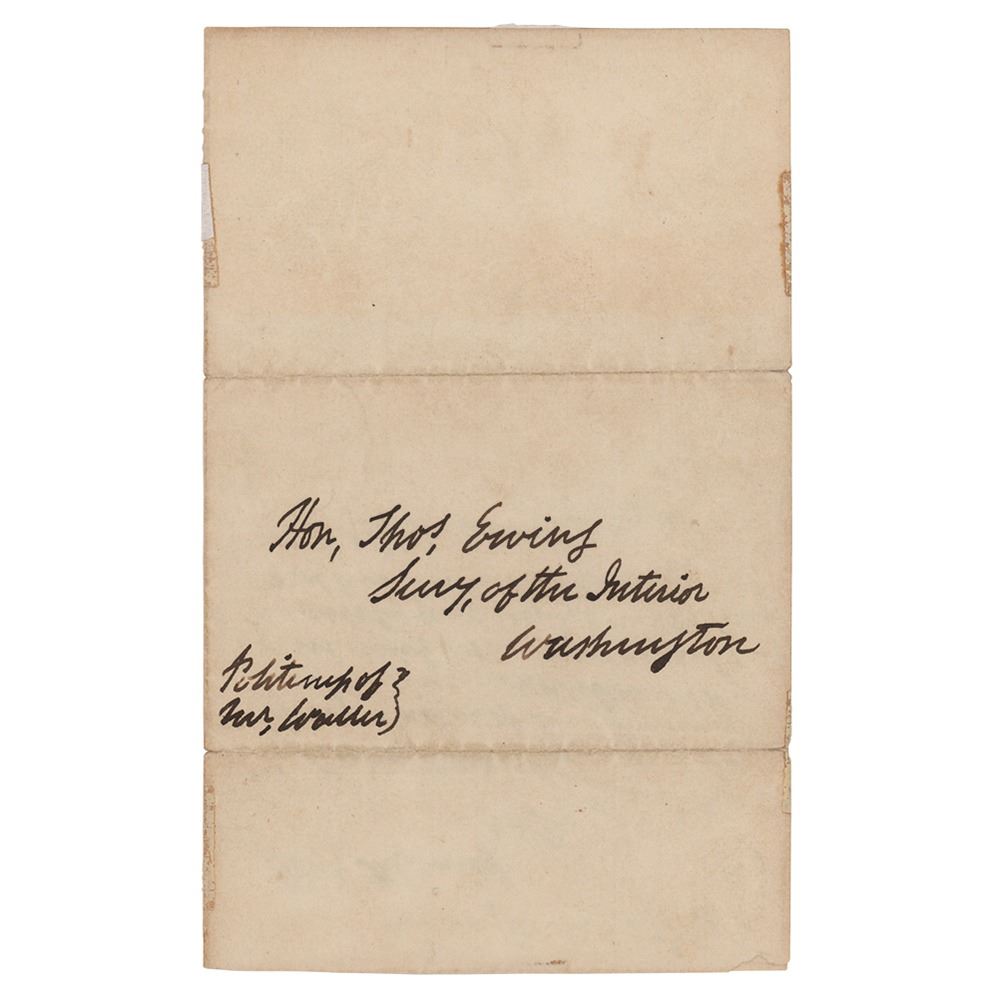 Hon, Thos, Ewing
Secy, of the Interior
Washington
Politeness of }
Mr, Waller }